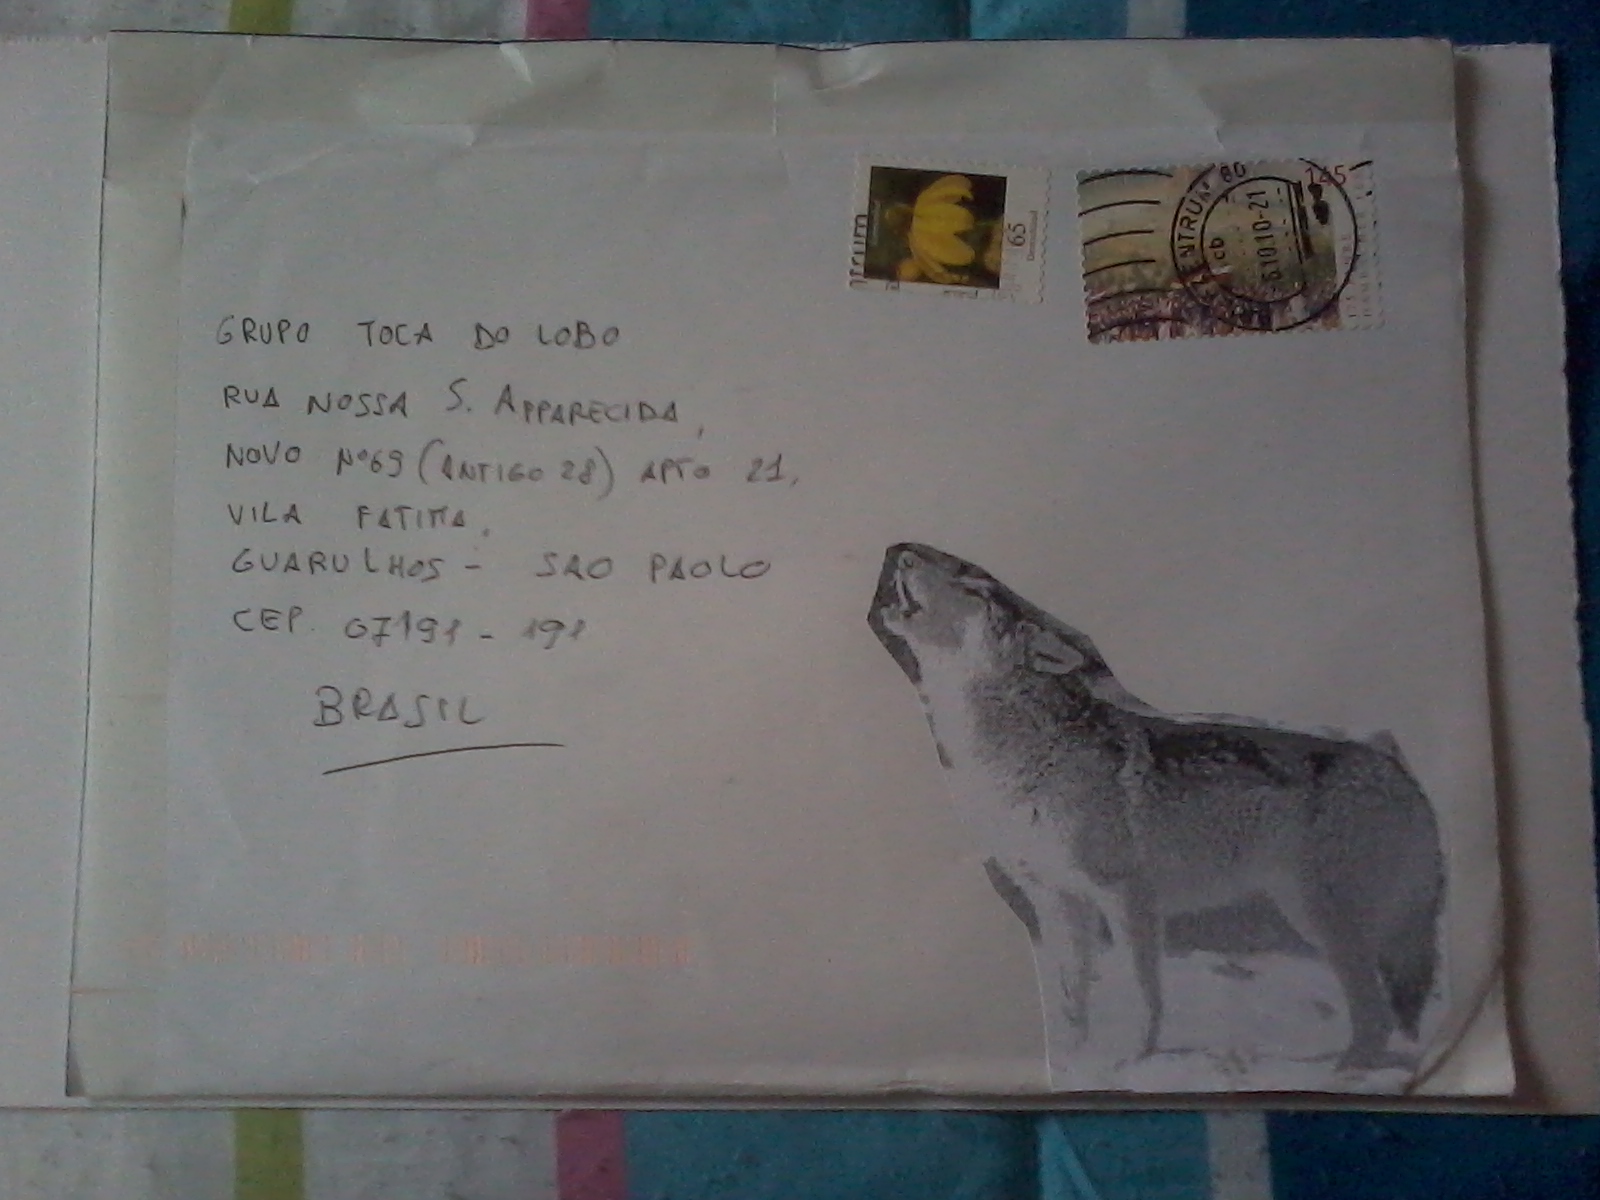 65
145
ENTRUM 80
cb
10.10-21
GRUPO TOCA DO LOBO
RUA NOSSA S. APPARECIDA,
NOVO Nº69 (ANTIGO 28) APTO 21,
VILA FATIMA,
GUARULHOS - SAO PAOLO
CEP. 07191-191
BRASIL